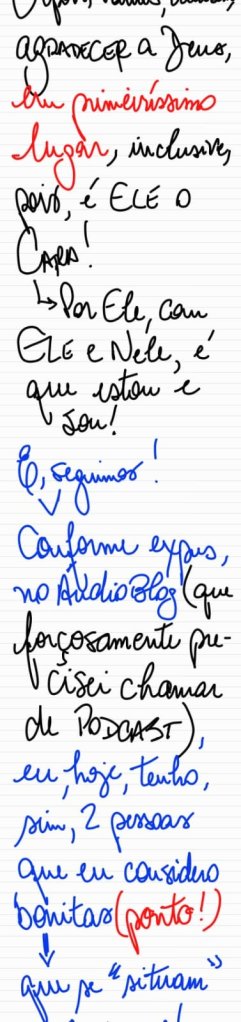 agradecer a Deus,
em primeiríssimo
lugar, inclusive,
pois, é ELE o
CARA!
↳ Por Ele, com
ELE e Nele, é
que estou e
sou!
E, seguimos!
Conforme expus,
no ÁudioBlog (que
forçosamente pre-
cisei chamar
de PODCAST),
eu, hoje, tenho,
sim, 2 pessoas
que eu considero
bonitas (ponto!)
que se "situam"